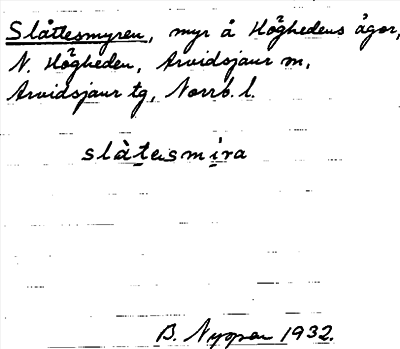 Slåttesmyren, myr å Högheden​s ägor,
N. Högheden, Arvidsjaur m,
Arvidsjaur tg, Norrb. l.
slàtesmira
B. 1932.